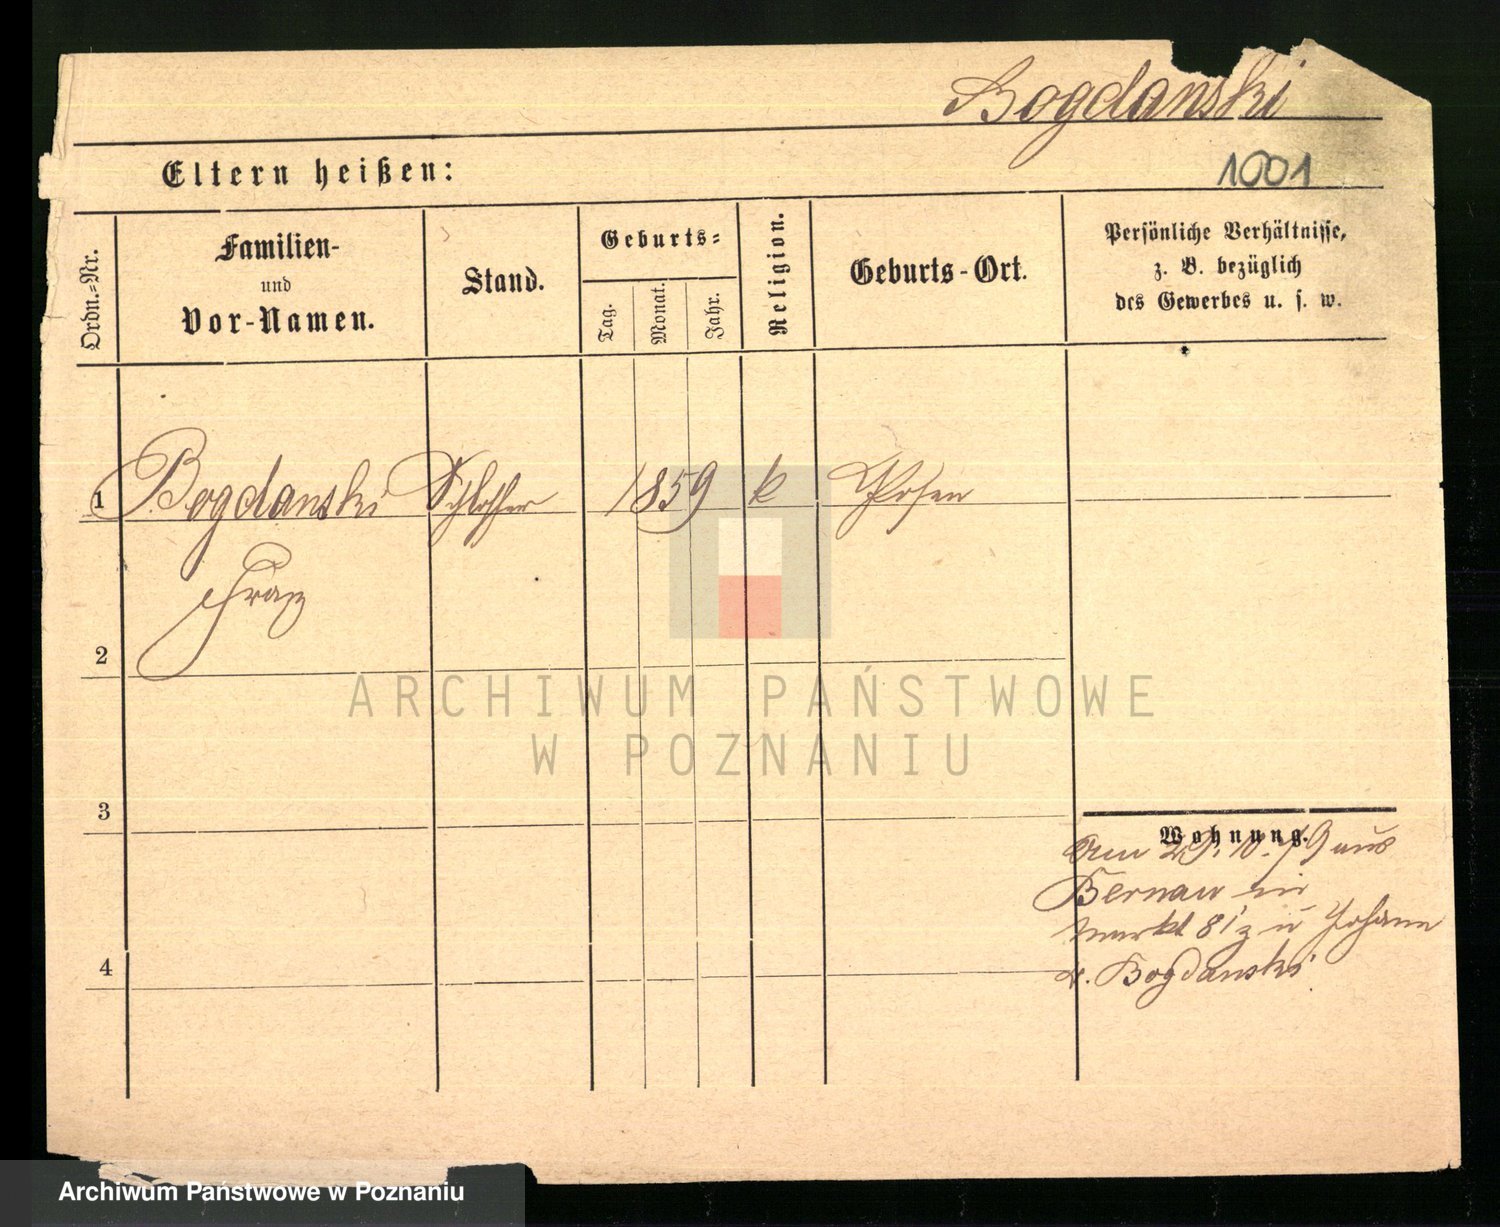 Bogdanski
Eltern heißen:
1001
Ordn.-Nr.
Familien-
und
Vor-Namen.
Stand.
Geburts-
Tag.
Monat.
Jahr.
Religion.
Geburts-Ort.
Persönliche Verhältnisse,
z. B. bezüglich
des Gewerbes u. s. w.
1 Bogdanski Schlosser 1859 k Posen
Franz
2
3
4
Wohnung.
Am 29. 10. 79 aus
Bernau in
Markt 81 zu Johann
v. Bogdanski
ARCHIWUM PAŃSTWOWE
W POZNANIU
Archiwum Państwowe w Poznaniu